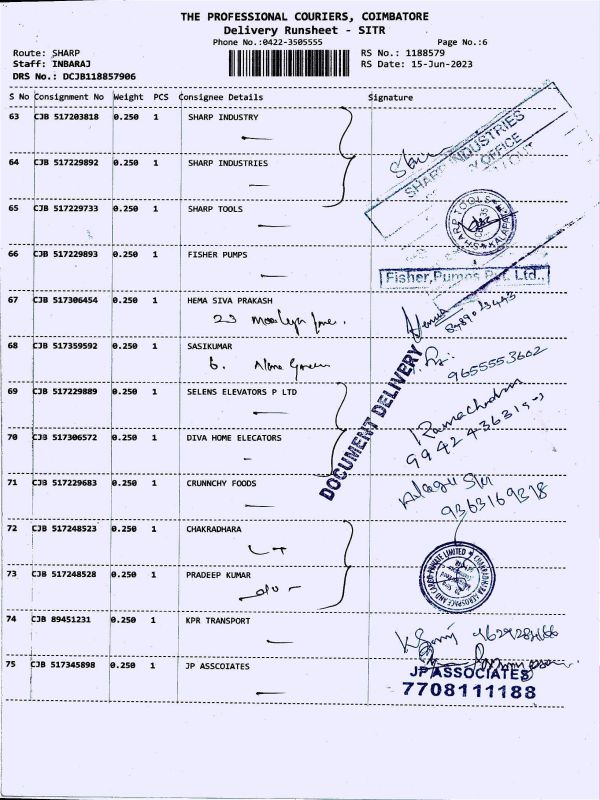 THE PROFESSIONAL COURIERS, COIMBATORE
Delivery Runsheet - SITR
Phone No.:0422-3505555 Page No.:6
Route: SHARP RS No.: 1188579
Staff: INBARAJ RS Date: 15-Jun-2023
DRS No.: DCJB118857906
S No Consignment No Weight PCS Consignee Details Signature
63 CJB 517203818 0.250 1 SHARP INDUSTRY
SHARP INDUSTRIES
OFFICE
64 CJB 517229892 0.250 1 SHARP INDUSTRIES
65 CJB 517229733 0.250 1 SHARP TOOLS
SHARP TOOLS
66 CJB 517229893 0.250 1 FISHER PUMPS
Fisher Pumps Pvt. Ltd.,
67 CJB 517306454 0.250 1 HEMA SIVA PRAKASH
23
68 CJB 517359592 0.250 1 SASIKUMAR
6.
9655553602
DOCUMENT DELIVERY
69 CJB 517229889 0.250 1 SELENS ELEVATORS P LTD
Ramachandran
70 CJB 517306572 0.250 1 DIVA HOME ELECATORS
71 CJB 517229683 0.250 1 CRUNNCHY FOODS
9363169318
72 CJB 517248523 0.250 1 CHAKRADHARA
73 CJB 517248528 0.250 1 PRADEEP KUMAR
74 CJB 89451231 0.250 1 KPR TRANSPORT
75 CJB 517345898 0.250 1 JP ASSCOIATES
JP ASSOCIATES
7708111188